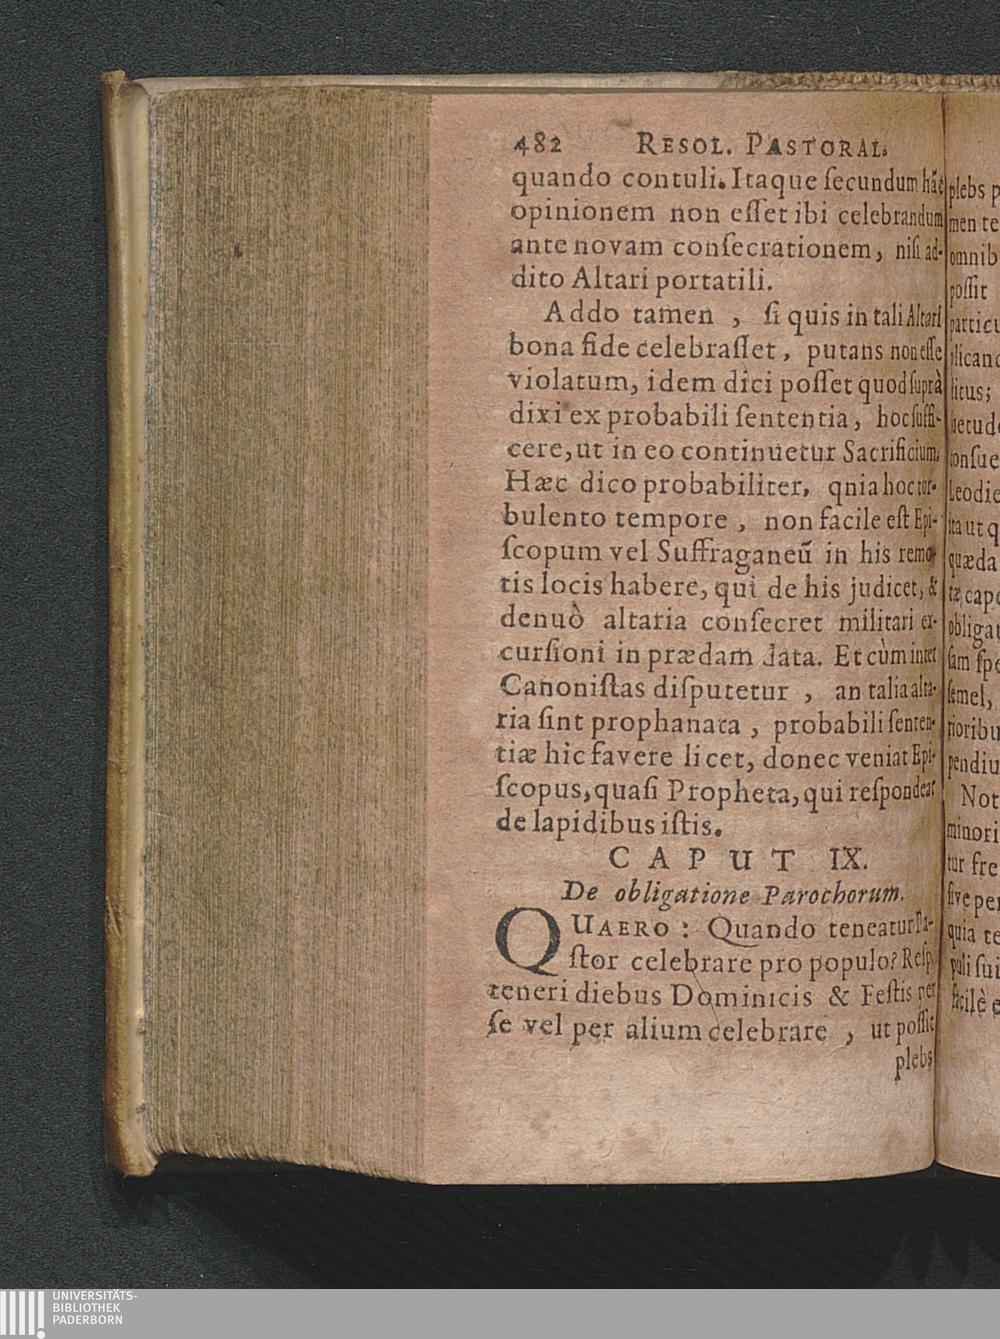 482 RESOL. PASTORAL.
quando contuli. Itaque ſecundum hãc
opinionem non eſſet ibi celebrandum
ante novam conſecrationem, niſi ad-
dito Altari portatili.
Addo tamen , ſi quis in tali Altari
bona fide celebraſſet, putans non eſſe
violatum, idem dici poſſet quod ſuprà
dixi ex probabili ſententia, hoc ſuffi-
cere, ut in eo continuetur Sacrificium.
Hæc dico probabiliter, qnia hoc tur-
bulento tempore , non facile eſt Epi-
ſcopum vel Suffraganeũ in his remo-
tis locis habere, qui de his judicet, &
denuò altaria conſecret militari ex-
curſioni in prædam data. Et cùm inter
Canoniſtas diſputetur , an talia alta-
ria ſint prophanata , probabili ſenten-
tiæ hic favere licet, donec veniat Epi-
ſcopus, quaſi Propheta, qui reſpondeat
de lapidibus iſtis.
CAPUT IX.
De obligatione Parochorum.
QUAERO : Quando teneatur Pa-
ſtor celebrare pro populo? Reſp.
teneri diebus Dominicis & Feſtis per
ſe vel per alium celebrare , ut poſſit
plebs
plebs p
men te
omnib
poſſit
particu
plicand
licus;
ſuetud
conſue
Leodie
ita ut q
quæda
tæ, cap
obligat
ſam ſpe
ſemel,
rioribu
pendiu
Not
minori
tur fre
ſive per
quia te
puli ſui
facilè e
UNIVERSITÄTS-
BIBLIOTHEK
PADERBORN